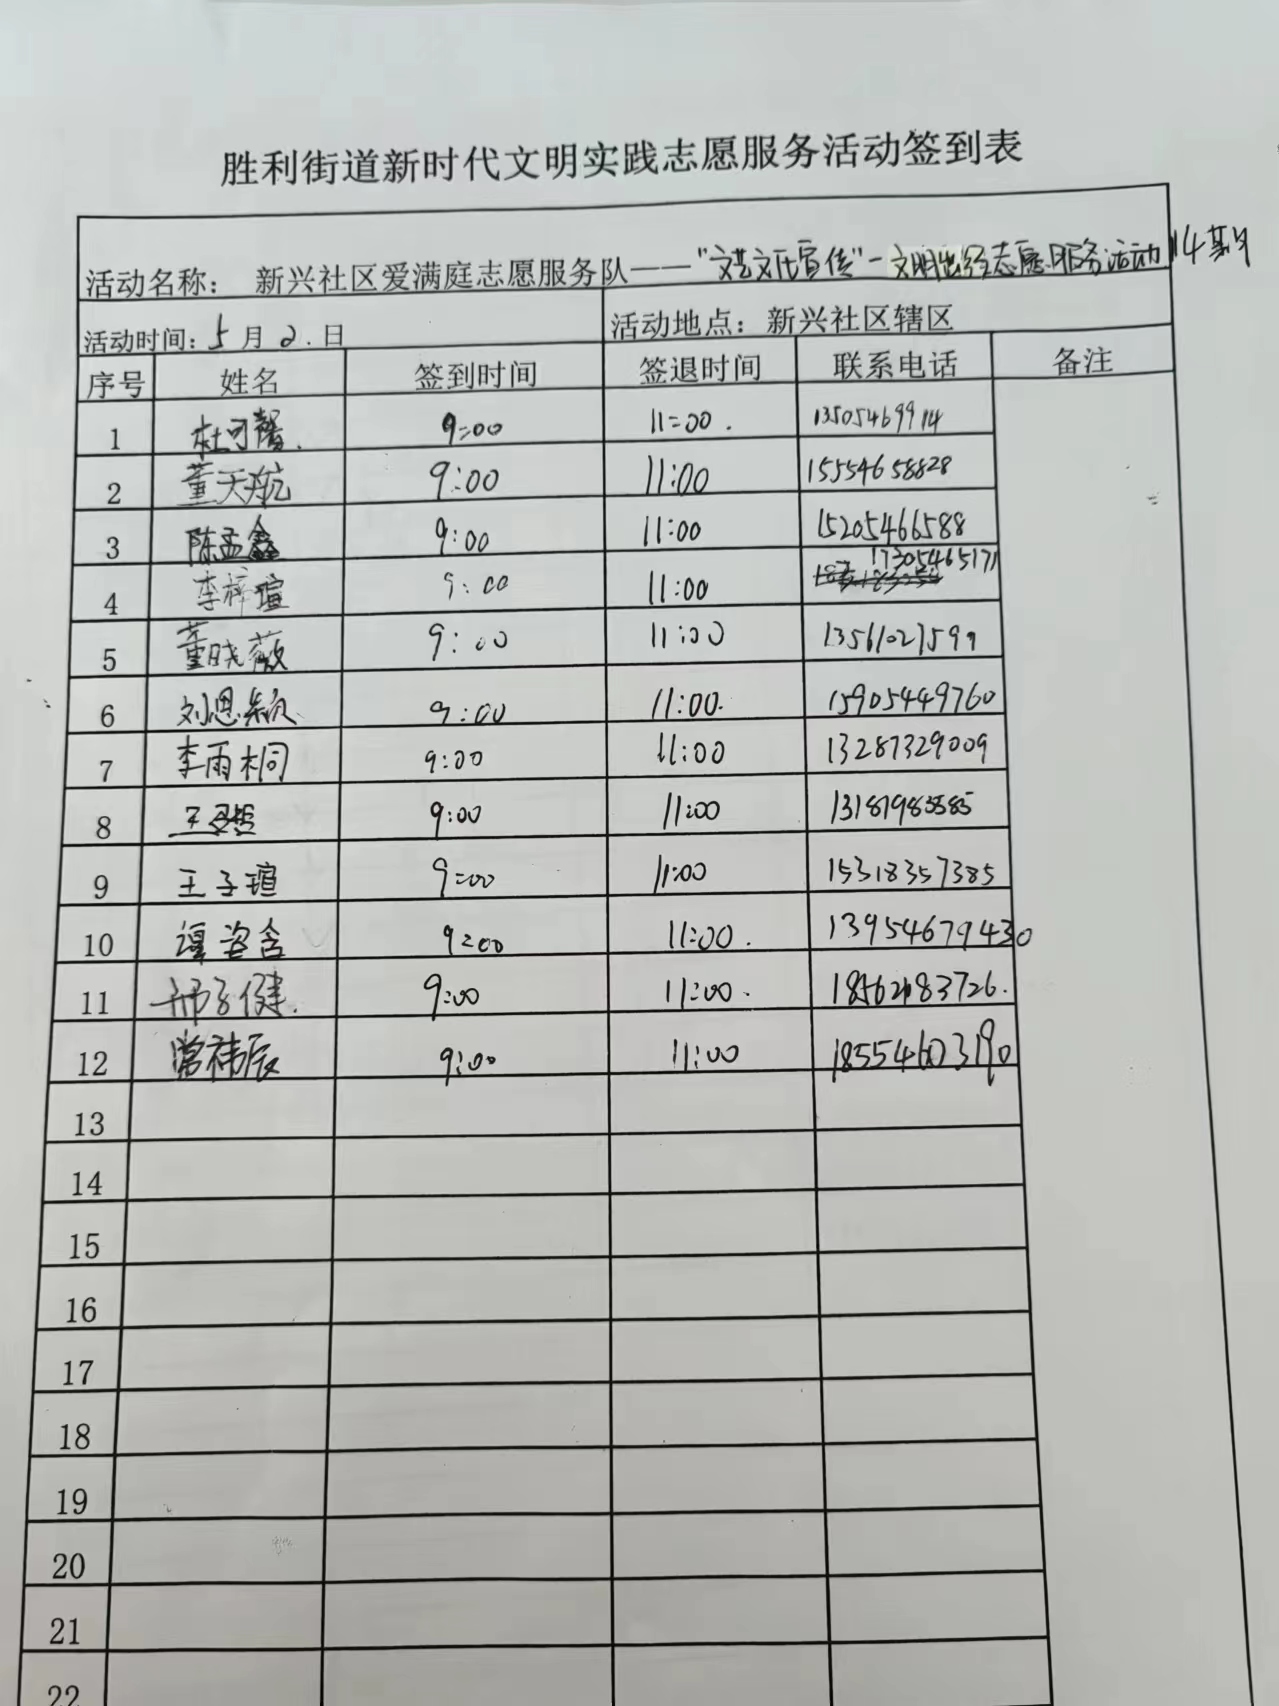 胜利街道新时代文明实践志愿服务活动签到表
活动名称： 新兴社区爱满庭志愿服务队——“文艺文化宣传”-文明出经志愿服务活动14
活动时间：5月2.日 活动地点：新兴社区辖区
序号 姓名 签到时间 签退时间 联系电话 备注
1 杜可馨. 9=00 11=00. 13505469914
2 董天航 9:00 11:00 15554658828
3 陈孟鑫 9:00 11:00 15205466588
4 李梓瑄 9:00 11:00 17305465171
5 董晓薇 9:00 11:00 13561027599
6 刘恩颖 9:00 11:00. 15905449760
7 李雨桐 9:00 11:00 13287329009
8 王 9:00 11:00
9 王子瑄 9=00 11:00 15318357385
10 谭姿含 9:00 11:00. 13954679430
11 邢子健. 9:00 11:00. 18562183726.
12 常祎辰 9:00 11:00 18554603190
13
14
15
16
17
18
19
20
21
22